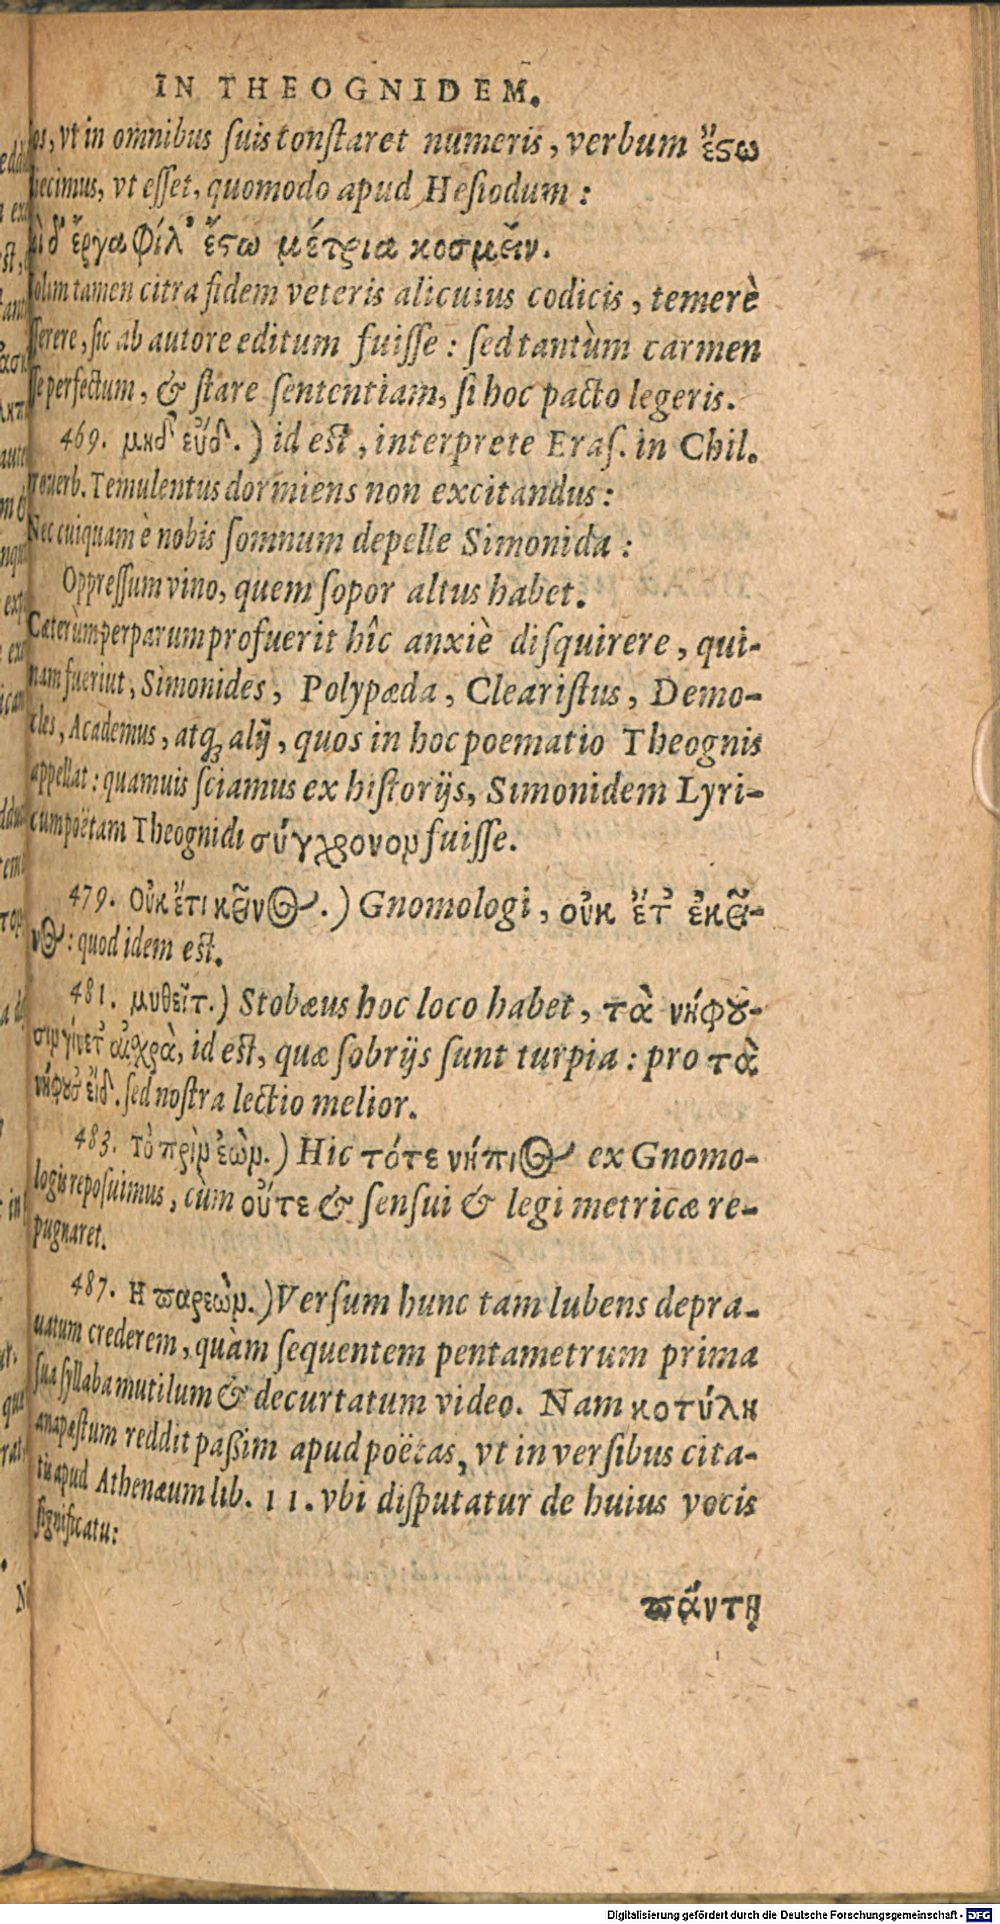 IN THEOGNIDEM.
os, vt in omnibus suis constaret numeris, verbum ἔςω
iecimus, vt esset, quomodo apud Hesiodum:
δ' ἔργα φίλ' ἔςω μέτρια κοσμεῖν.
olim tamen citra fidem veteris alicuius codicis, temerè
serere, sic ab autore editum fuisse: sed tantùm carmen
se perfectum, & stare sententiam, si hoc pacto legeris.
469. μηδ' εὕδ.) id est, interprete Eras. in Chil.
rouerb. Temulentus dormiens non excitandus:
Nec cuiquam è nobis somnum depelle Simonida:
Oppressum vino, quem sopor altus habet.
Cæterùm perparum profuerit hîc anxiè disquirere, qui-
nam fuerint, Simonides, Polypæda, Clearistus, Demo-
cles, Academus, atq; alij, quos in hoc poematio Theognis
appellat: quamuis sciamus ex historijs, Simonidem Lyri-
cum poëtam Theognidi σύγχρονον fuisse.
479. Οὐκ ἔτι κεῖνος.) Gnomologi, οὐκ ἔτ' ἐκεῖ-
νος: quod idem est.
481. μυθεῖτ.) Stobæus hoc loco habet, τὰ νήφου-
σιν γίνετ' αἰχρὰ, id est, quæ sobrijs sunt turpia: pro τὰ
νήφουσ' εἴδ. sed nostra lectio melior.
483. Τὸ πρὶν ἐὼν.) Hic τότε νήπιος ex Gnomo-
logis reposuimus, cùm οὔτε & sensui & legi metricæ re-
pugnaret.
487. Η παρεὼν.) Versum hunc tam lubens depra-
uatum crederem, quàm sequentem pentametrum prima
sua syllaba mutilum & decurtatum video. Nam κοτύλη
anapæstum reddit passim apud poëtas, vt in versibus cita-
tis apud Athenæum lib. 11. vbi disputatur de huius vocis
significatu:
πάντῃ
Digitalisierung gefördert durch die Deutsche Forschungsgemeinschaft - DFG